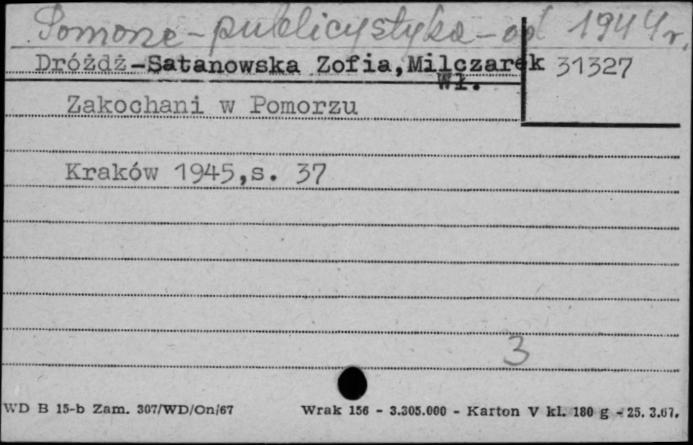 Pomorze - publicystyka - od 1944 r.
Dróżdż-Satanowska Zofia, Milczarek 31327
Wł.
Zakochani w Pomorzu
Kraków 1945, s. 37
3
WD B 15-b Zam. 307/WD/On/67 Wrak 156 - 3.305.000 - Karton V kl. 180 g - 25. 3.67.